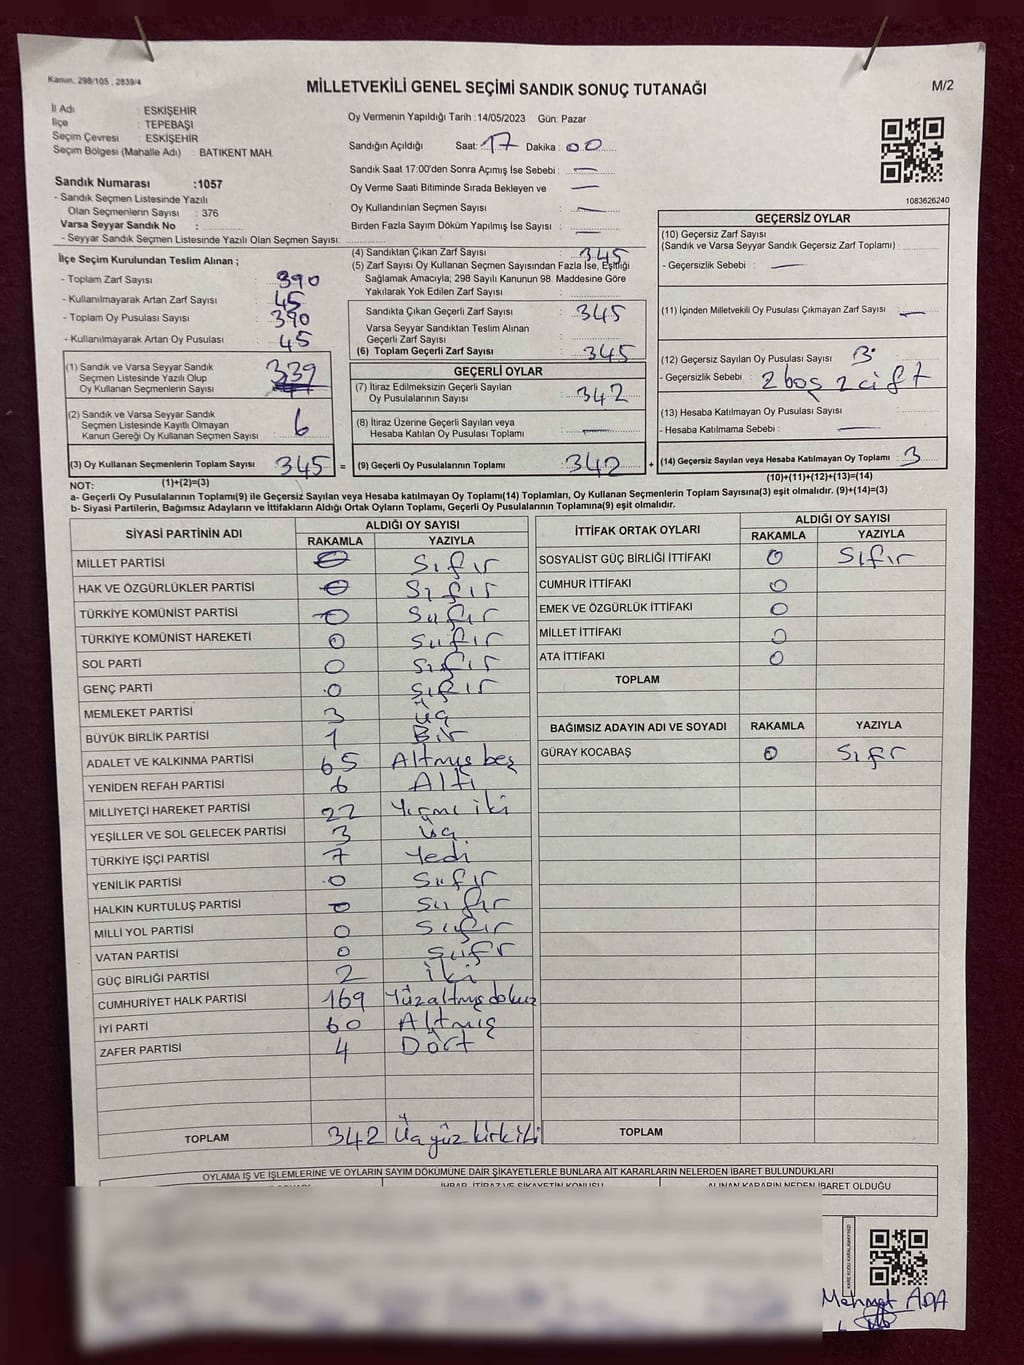 Kanun: 298/105 ; 2839/4
MİLLETVEKİLİ GENEL SEÇİMİ SANDIK SONUÇ TUTANAĞI
M/2
İl Adı : ESKİŞEHİR
İlçe : TEPEBAŞI
Seçim Çevresi : ESKİŞEHİR
Seçim Bölgesi (Mahalle Adı) : BATIKENT MAH.
Sandık Numarası :1057
- Sandık Seçmen Listesinde Yazılı
Olan Seçmenlerin Sayısı : 376
Varsa Seyyar Sandık No :
- Seyyar Sandık Seçmen Listesinde Yazılı Olan Seçmen Sayısı:
Oy Vermenin Yapıldığı Tarih :14/05/2023 Gün: Pazar
Sandığın Açıldığı Saat: 17 Dakika : 00
Sandık Saat 17:00'den Sonra Açımış İse Sebebi : —
Oy Verme Saati Bitiminde Sırada Bekleyen ve —
Oy Kullandırılan Seçmen Sayısı : —
Birden Fazla Sayım Döküm Yapılmış İse Sayısı : —
1083626240
İlçe Seçim Kurulundan Teslim Alınan ;
- Toplam Zarf Sayısı : 390
- Kullanılmayarak Artan Zarf Sayısı : 45
- Toplam Oy Pusulası Sayısı : 390
- Kullanılmayarak Artan Oy Pusulası : 45
(1) Sandık ve Varsa Seyyar Sandık
Seçmen Listesinde Yazılı Olup
Oy Kullanan Seçmenlerin Sayısı : 339
(2) Sandık ve Varsa Seyyar Sandık
Seçmen Listesinde Kayıtlı Olmayan
Kanun Gereği Oy Kullanan Seçmen Sayısı : 6
(3) Oy Kullanan Seçmenlerin Toplam Sayısı 345 =
(1)+(2)=(3)
(4) Sandıktan Çıkan Zarf Sayısı : 345
(5) Zarf Sayısı Oy Kullanan Seçmen Sayısından Fazla İse, Eşitliği
Sağlamak Amacıyla; 298 Sayılı Kanunun 98. Maddesine Göre
Yakılarak Yok Edilen Zarf Sayısı :
Sandıkta Çıkan Geçerli Zarf Sayısı : 345
Varsa Seyyar Sandıktan Teslim Alınan
Geçerli Zarf Sayısı :
(6) Toplam Geçerli Zarf Sayısı : 345
GEÇERLİ OYLAR
(7) İtiraz Edilmeksizin Geçerli Sayılan
Oy Pusulalarının Sayısı : 342
(8) İtiraz Üzerine Geçerli Sayılan veya
Hesaba Katılan Oy Pusulası Toplamı : —
(9) Geçerli Oy Pusulalarının Toplamı : 342 +
GEÇERSİZ OYLAR
(10) Geçersiz Zarf Sayısı
(Sandık ve Varsa Seyyar Sandık Geçersiz Zarf Toplamı) :
- Geçersizlik Sebebi : —
(11) İçinden Milletvekili Oy Pusulası Çıkmayan Zarf Sayısı : —
(12) Geçersiz Sayılan Oy Pusulası Sayısı : 3
- Geçersizlik Sebebi : 2 boş 2 çift
(13) Hesaba Katılmayan Oy Pusulası Sayısı :
- Hesaba Katılmama Sebebi : —
(14) Geçersiz Sayılan veya Hesaba Katılmayan Oy Toplamı : 3
(10)+(11)+(12)+(13)=(14)
NOT:
a- Geçerli Oy Pusulalarının Toplamı(9) ile Geçersiz Sayılan veya Hesaba katılmayan Oy Toplamı(14) Toplamları, Oy Kullanan Seçmenlerin Toplam Sayısına(3) eşit olmalıdır. (9)+(14)=(3)
b- Siyasi Partilerin, Bağımsız Adayların ve İttifakların Aldığı Ortak Oyların Toplamı, Geçerli Oy Pusulalarının Toplamına(9) eşit olmalıdır.
SİYASİ PARTİNİN ADI ALDIĞI OY SAYISI
RAKAMLA YAZIYLA
MİLLET PARTİSİ 0 Sıfır
HAK VE ÖZGÜRLÜKLER PARTİSİ 0 Sıfır
TÜRKİYE KOMÜNİST PARTİSİ 0 Sıfır
TÜRKİYE KOMÜNİST HAREKETİ 0 Sıfır
SOL PARTİ 0 Sıfır
GENÇ PARTİ 0 Sıfır
MEMLEKET PARTİSİ 3 Üç
BÜYÜK BİRLİK PARTİSİ 1 Bir
ADALET VE KALKINMA PARTİSİ 65 Altmış beş
YENİDEN REFAH PARTİSİ 6 Altı
MİLLİYETÇİ HAREKET PARTİSİ 22 Yirmi iki
YEŞİLLER VE SOL GELECEK PARTİSİ 3 Üç
TÜRKİYE İŞÇİ PARTİSİ 7 Yedi
YENİLİK PARTİSİ 0 Sıfır
HALKIN KURTULUŞ PARTİSİ 0 Sıfır
MİLLİ YOL PARTİSİ 0 Sıfır
VATAN PARTİSİ 0 Sıfır
GÜÇ BİRLİĞİ PARTİSİ 2 İki
CUMHURİYET HALK PARTİSİ 169 Yüzaltmışdokuz
İYİ PARTİ 60 Altmış
ZAFER PARTİSİ 4 Dört
TOPLAM 342 Üçyüz kırkiki
İTTİFAK ORTAK OYLARI ALDIĞI OY SAYISI
RAKAMLA YAZIYLA
SOSYALİST GÜÇ BİRLİĞİ İTTİFAKI 0 Sıfır
CUMHUR İTTİFAKI 0
EMEK VE ÖZGÜRLÜK İTTİFAKI 0
MİLLET İTTİFAKI 0
ATA İTTİFAKI 0
TOPLAM
BAĞIMSIZ ADAYIN ADI VE SOYADI RAKAMLA YAZIYLA
GÜRAY KOCABAŞ 0 Sıfır
TOPLAM
OYLAMA İŞ VE İŞLEMLERİNE VE OYLARIN SAYIM DÖKÜMÜNE DAİR ŞİKAYETLERLE BUNLARA AİT KARARLARIN NELERDEN İBARET BULUNDUKLARI
İHBAR, İTİRAZ VE ŞİKAYETİN KONUSU ALINAN KARARIN NEDEN İBARET OLDUĞU
Mehmet ADA